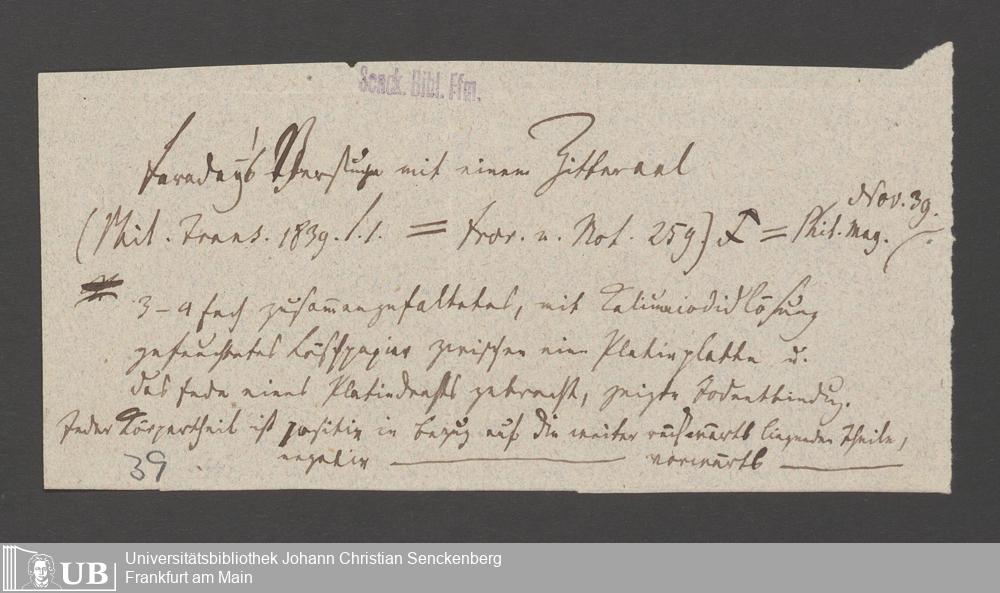 Senck. Bibl. Ffm.
Faraday's Versuche mit einem Zitteraal
Nov. 39.
(Phil. Trans. 1839. S. 1. = Fror. n. Not. 259) = Phil. Mag.
3-4 fach zusammengefaltetes, mit Kaliumiodidlösung
gefeuchtetes Löschpapier zwischen eine Platinplatte u.
das Ende eines Platindrahts gebracht, zeigte Jodentbindung.
Jeder Körpertheil ist positiv in Bezug auf die weiter rückwärts liegenden Theile,
negativ ———— vorwärts ————
39
UB
Universitätsbibliothek Johann Christian Senckenberg
Frankfurt am Main